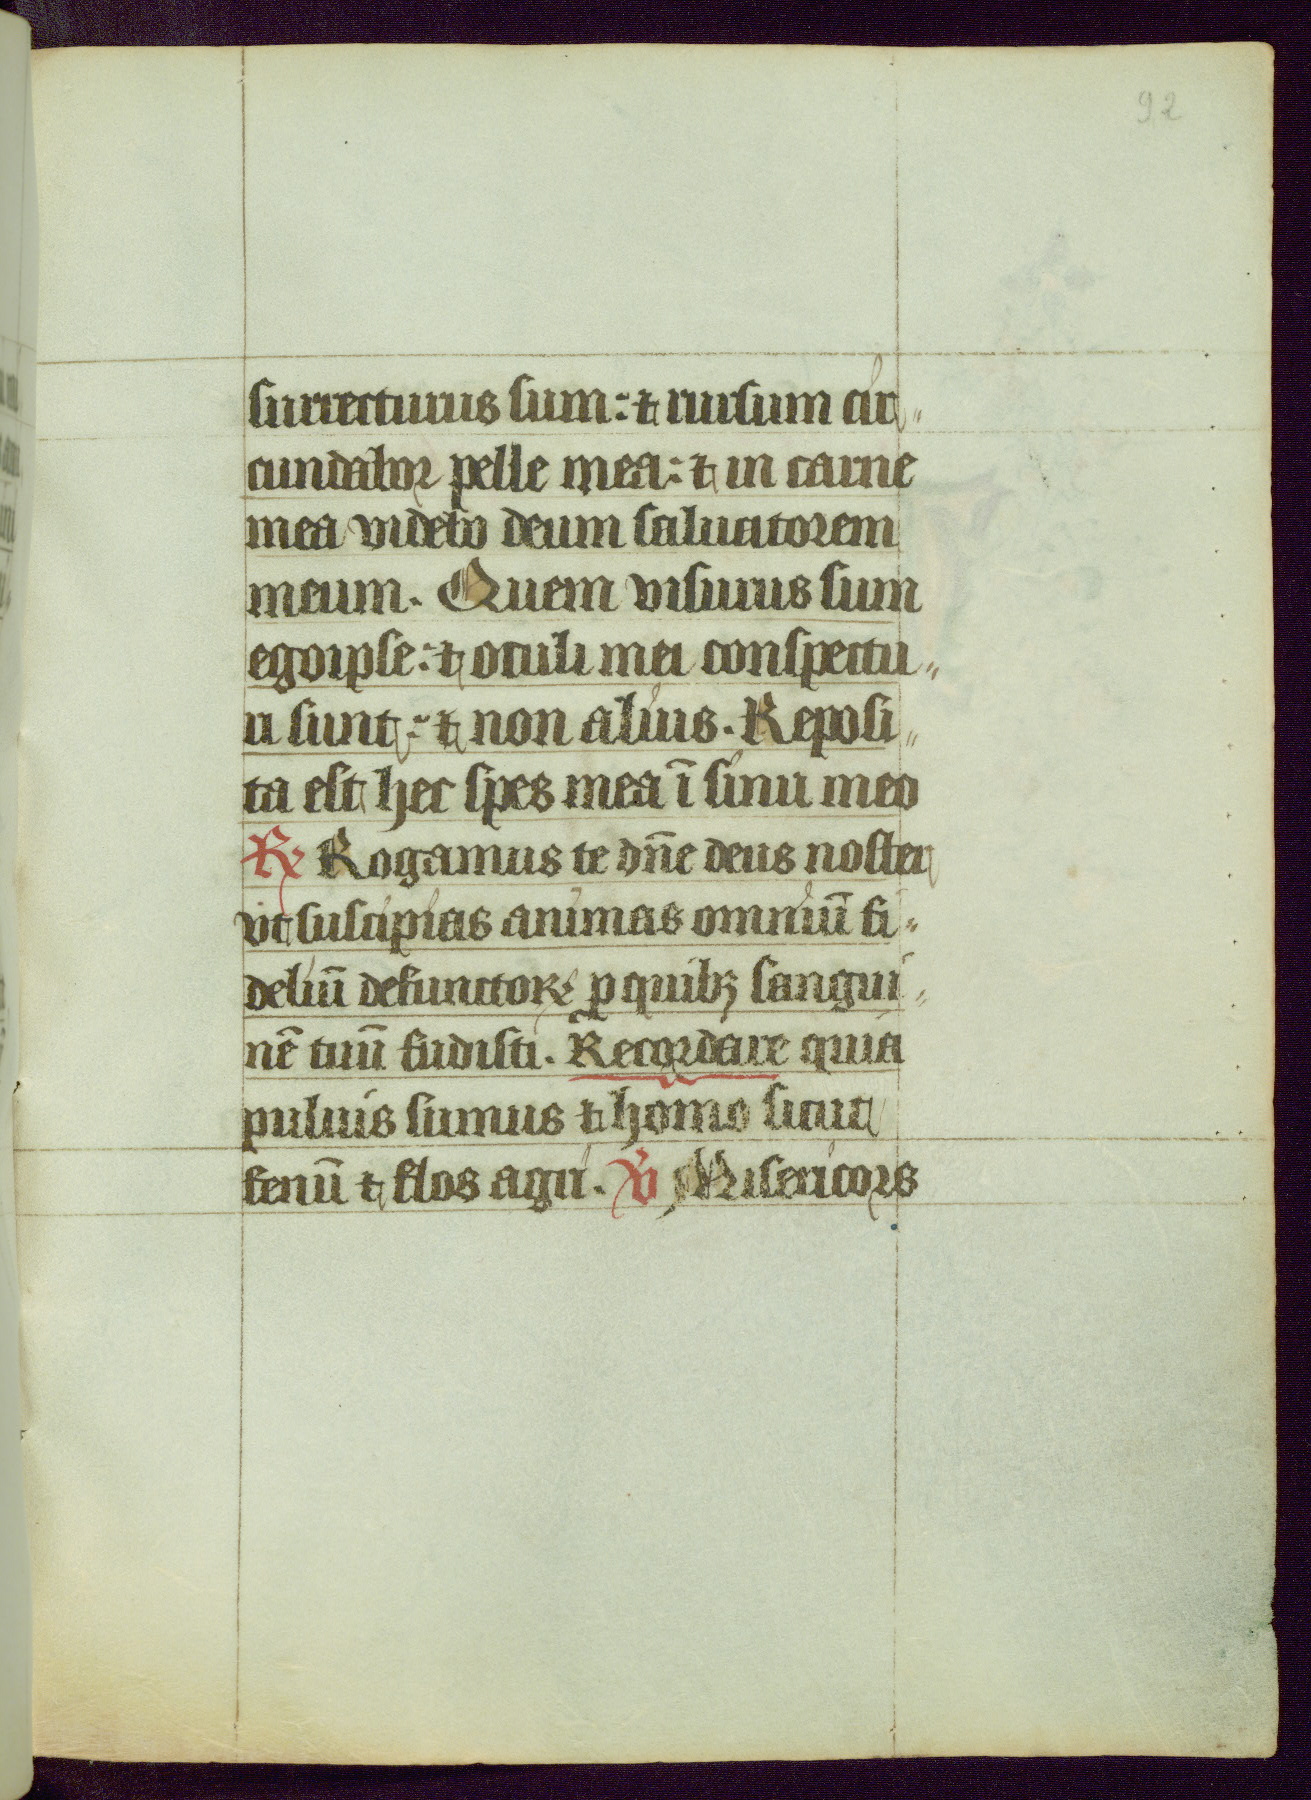 92
surrecturus sum: ⁊ rursum cir〃
cundabor pelle mea: ⁊ in carne
mea videbo deum saluatorem
meum. Quem visurus sum
egoipse: ⁊ oculi mei conspectu〃
ri sunt: ⁊ non alius. Reposi〃
ta est hec spes mea ī sinu meo
℟ Rogamus te dn̄e deus noster
vt suscipias animas omniū fi〃
deliū defunctoꝝ p quibꝫ sangui〃
nē tuū fudisti. Recordare quia
puluis sumus ⁊ homo sicut
fenū ⁊ flos agri. ℣ Misericors